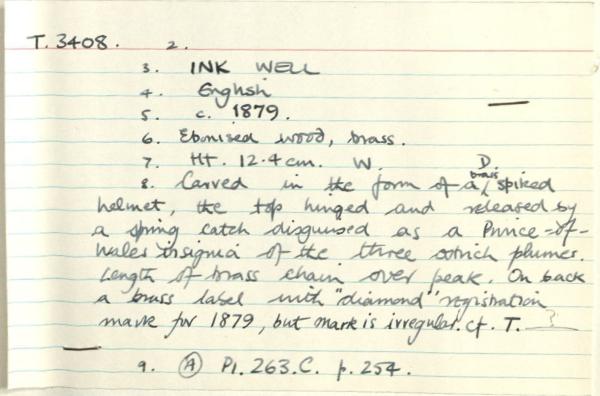 T. 3408. 2.
3. INK WELL
4. English
5. c. 1879.
6. Ebonised wood, brass.
7. Ht. 12.4 cm. W. D.
8. Carved in the form of a brass spiked
helmet, the top hinged and released by
a spring catch disguised as a Prince-of-
Wales insignia of the three ostrich plumes.
Length of brass chain over peak. On back
a brass label with "diamond" registration
mark for 1879, but mark is irregular. cf. T. ?
9. A Pl. 263.C. p. 254.